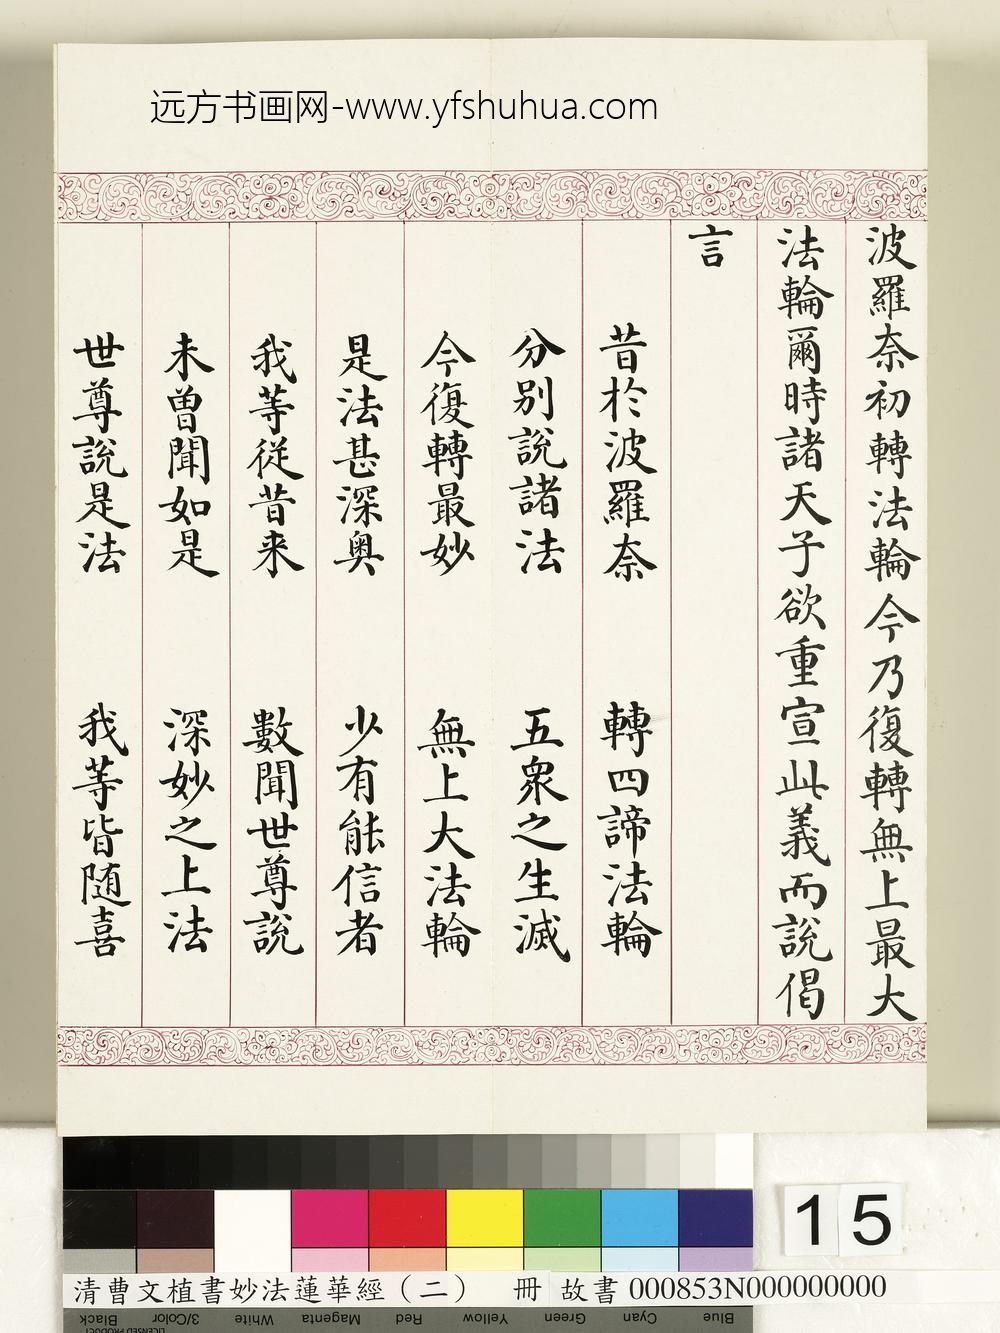 远方书画网-www.yfshuhua.com
波羅奈初轉法輪今乃復轉無上最大
法輪爾時諸天子欲重宣此義而說偈
言
昔於波羅奈 轉四諦法輪
分別說諸法 五眾之生滅
今復轉最妙 無上大法輪
是法甚深奧 少有能信者
我等從昔来 數聞世尊說
未曽聞如是 深妙之上法
世尊說是法 我等皆随喜
15
清曹文植書妙法蓮華經（二） 冊 故書 000853N000000000
Black 3/Color White Magenta Red Yellow Green Cyan Blue
LICENSED PRODUCT